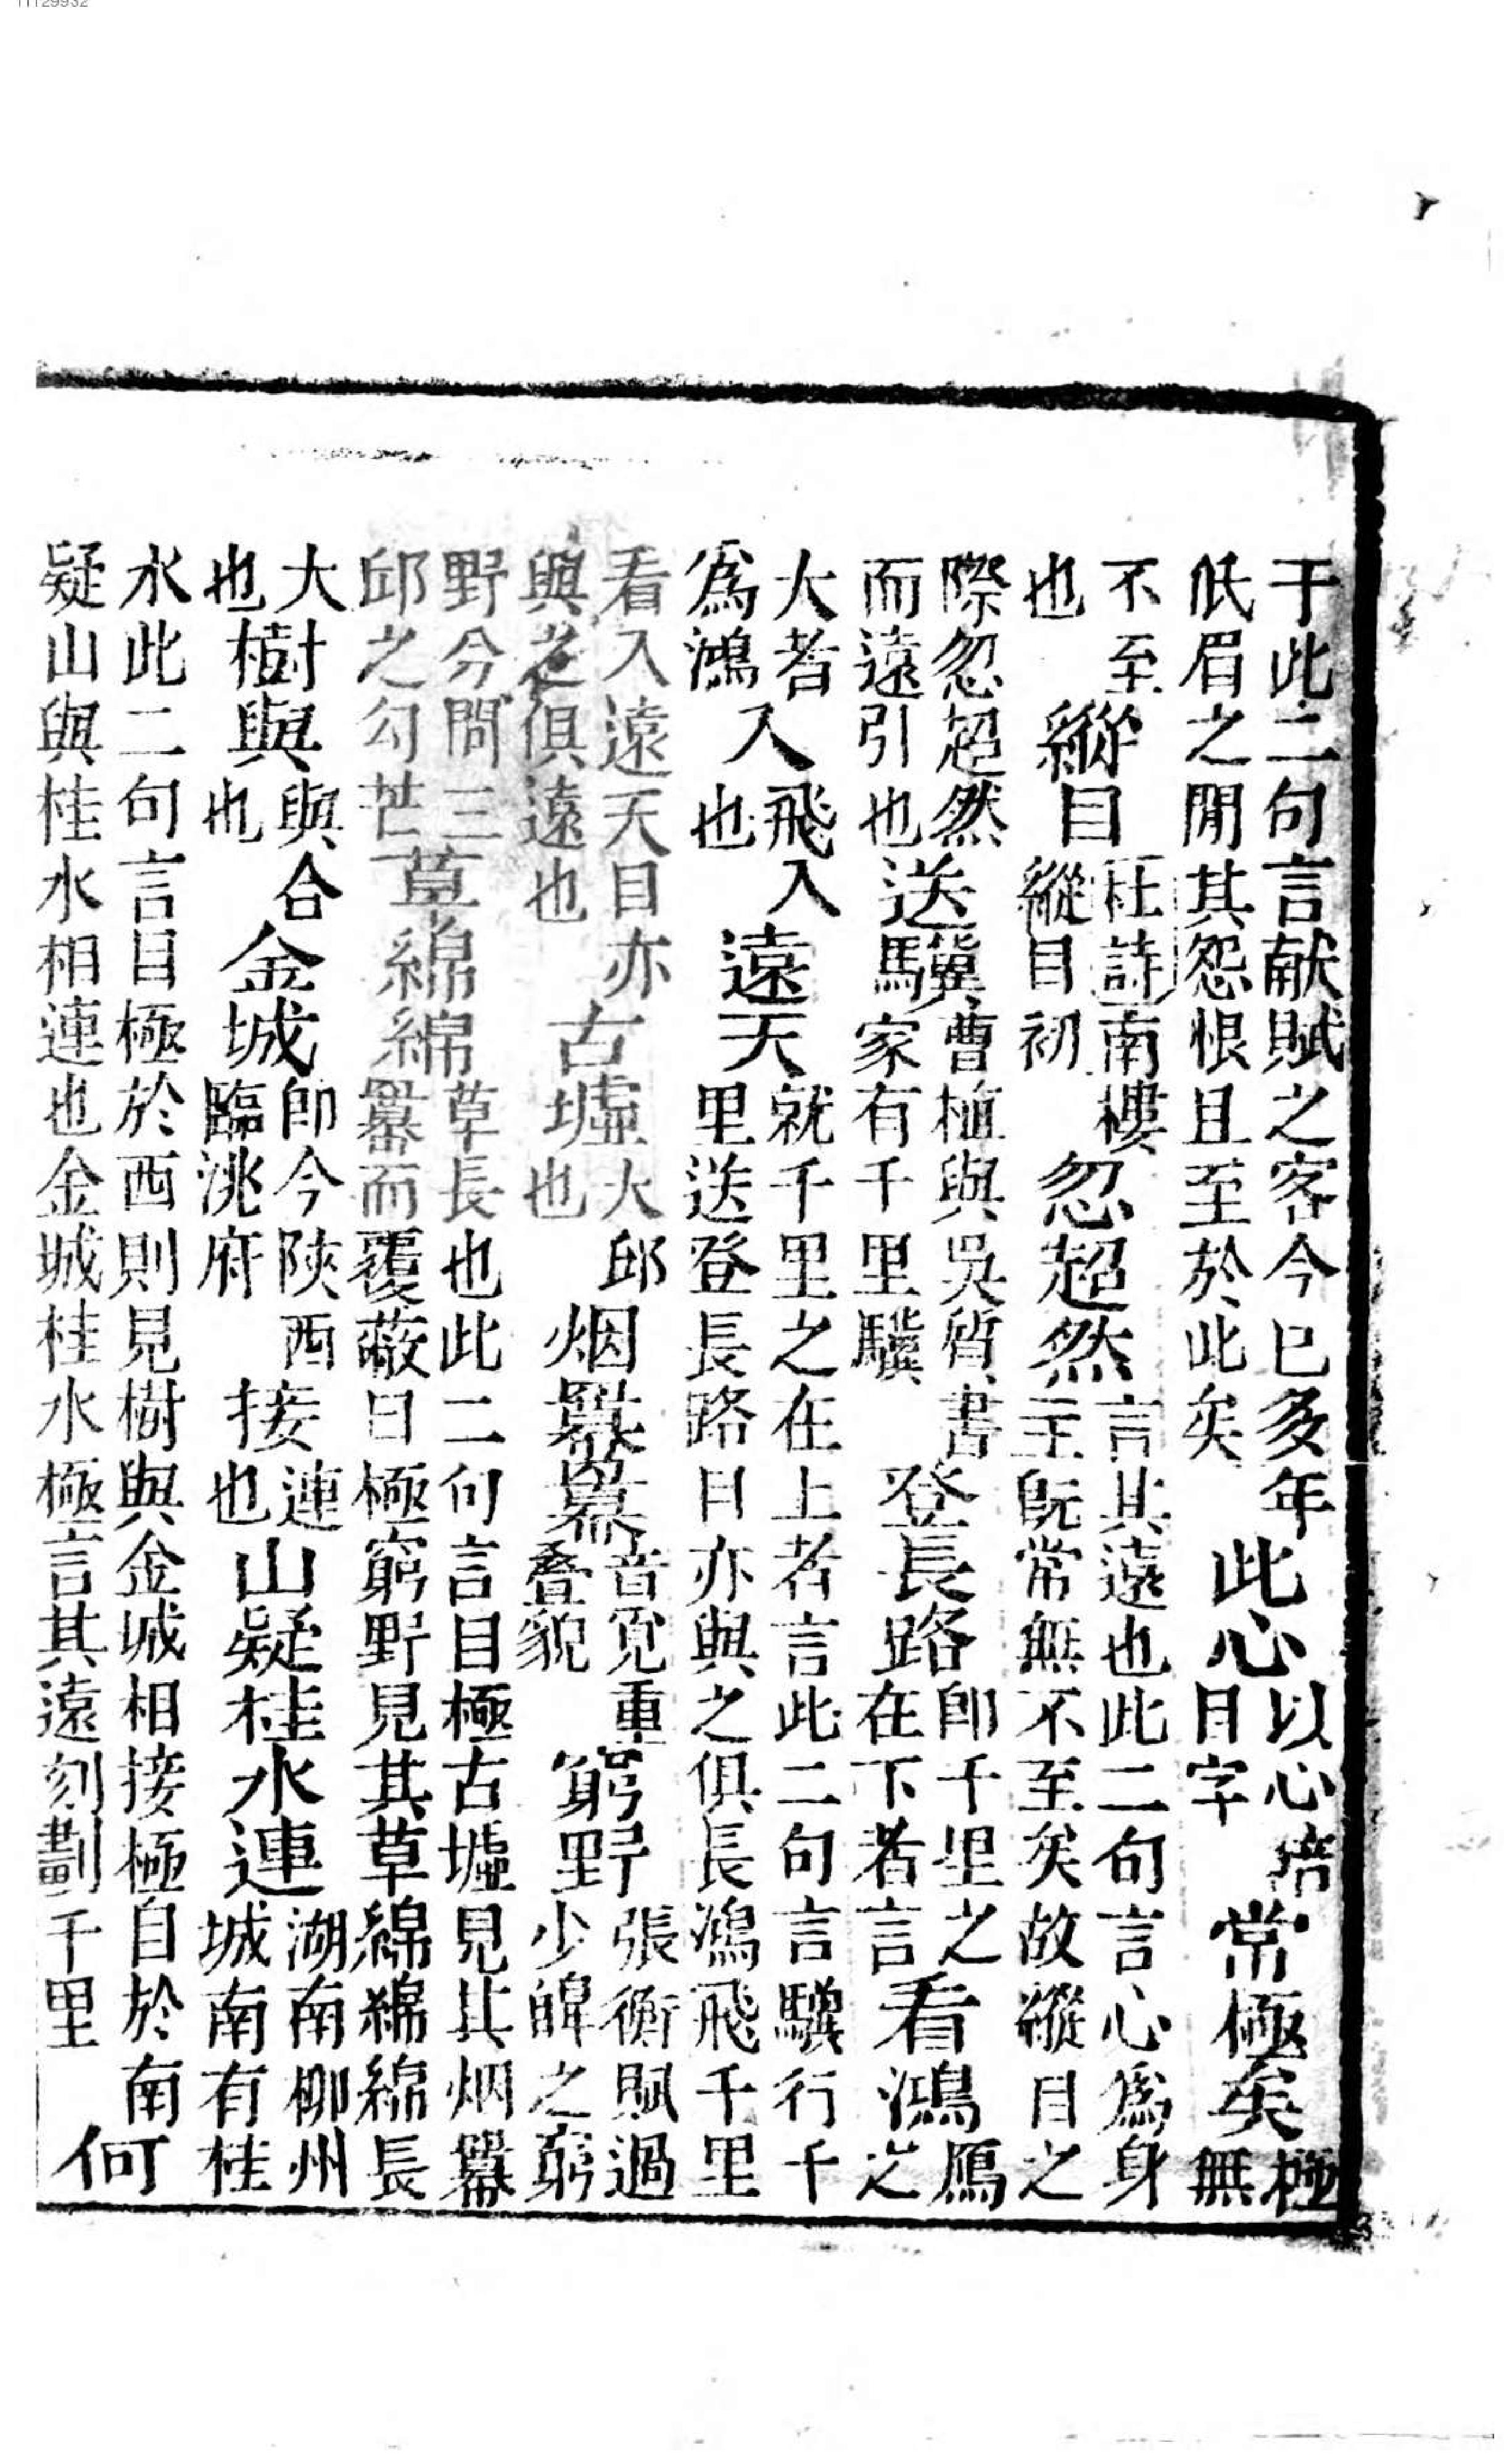 于此二句言献賦之客今已多年低眉之間其怨恨且至於此矣此心以心 目字常極矣極無
不至也縱目杜詩南樓縱目初忽超然言其遠也此二句言心為身主既常無不至矣故縱目之
際忽超然而遠引也送驥曹植與吳質書家有千里驥登長路即千里之在下者言看鴻鴈之
大者為鴻入飛入也遠天就千里之在上者言此二句言驥行千里送登長路目亦與之俱長鴻飛千里
看入遠天目亦與之俱遠也古墟大邱也烟羃羃音覓重叠貌窮野張衡賦過少皥之窮
野分問三邱之勾芒草綿綿草長也此二句言目極古墟見其烟羃羃而覆蔽目極窮野見其草綿綿長
大也樹與與合也金城即今陝西臨洮府接連也山疑桂水連湖南郴州城南有桂
水此二句言目極於西則見樹與金城相接極目於南疑山與桂水相連也金城桂水極言其遠刻劃千里何